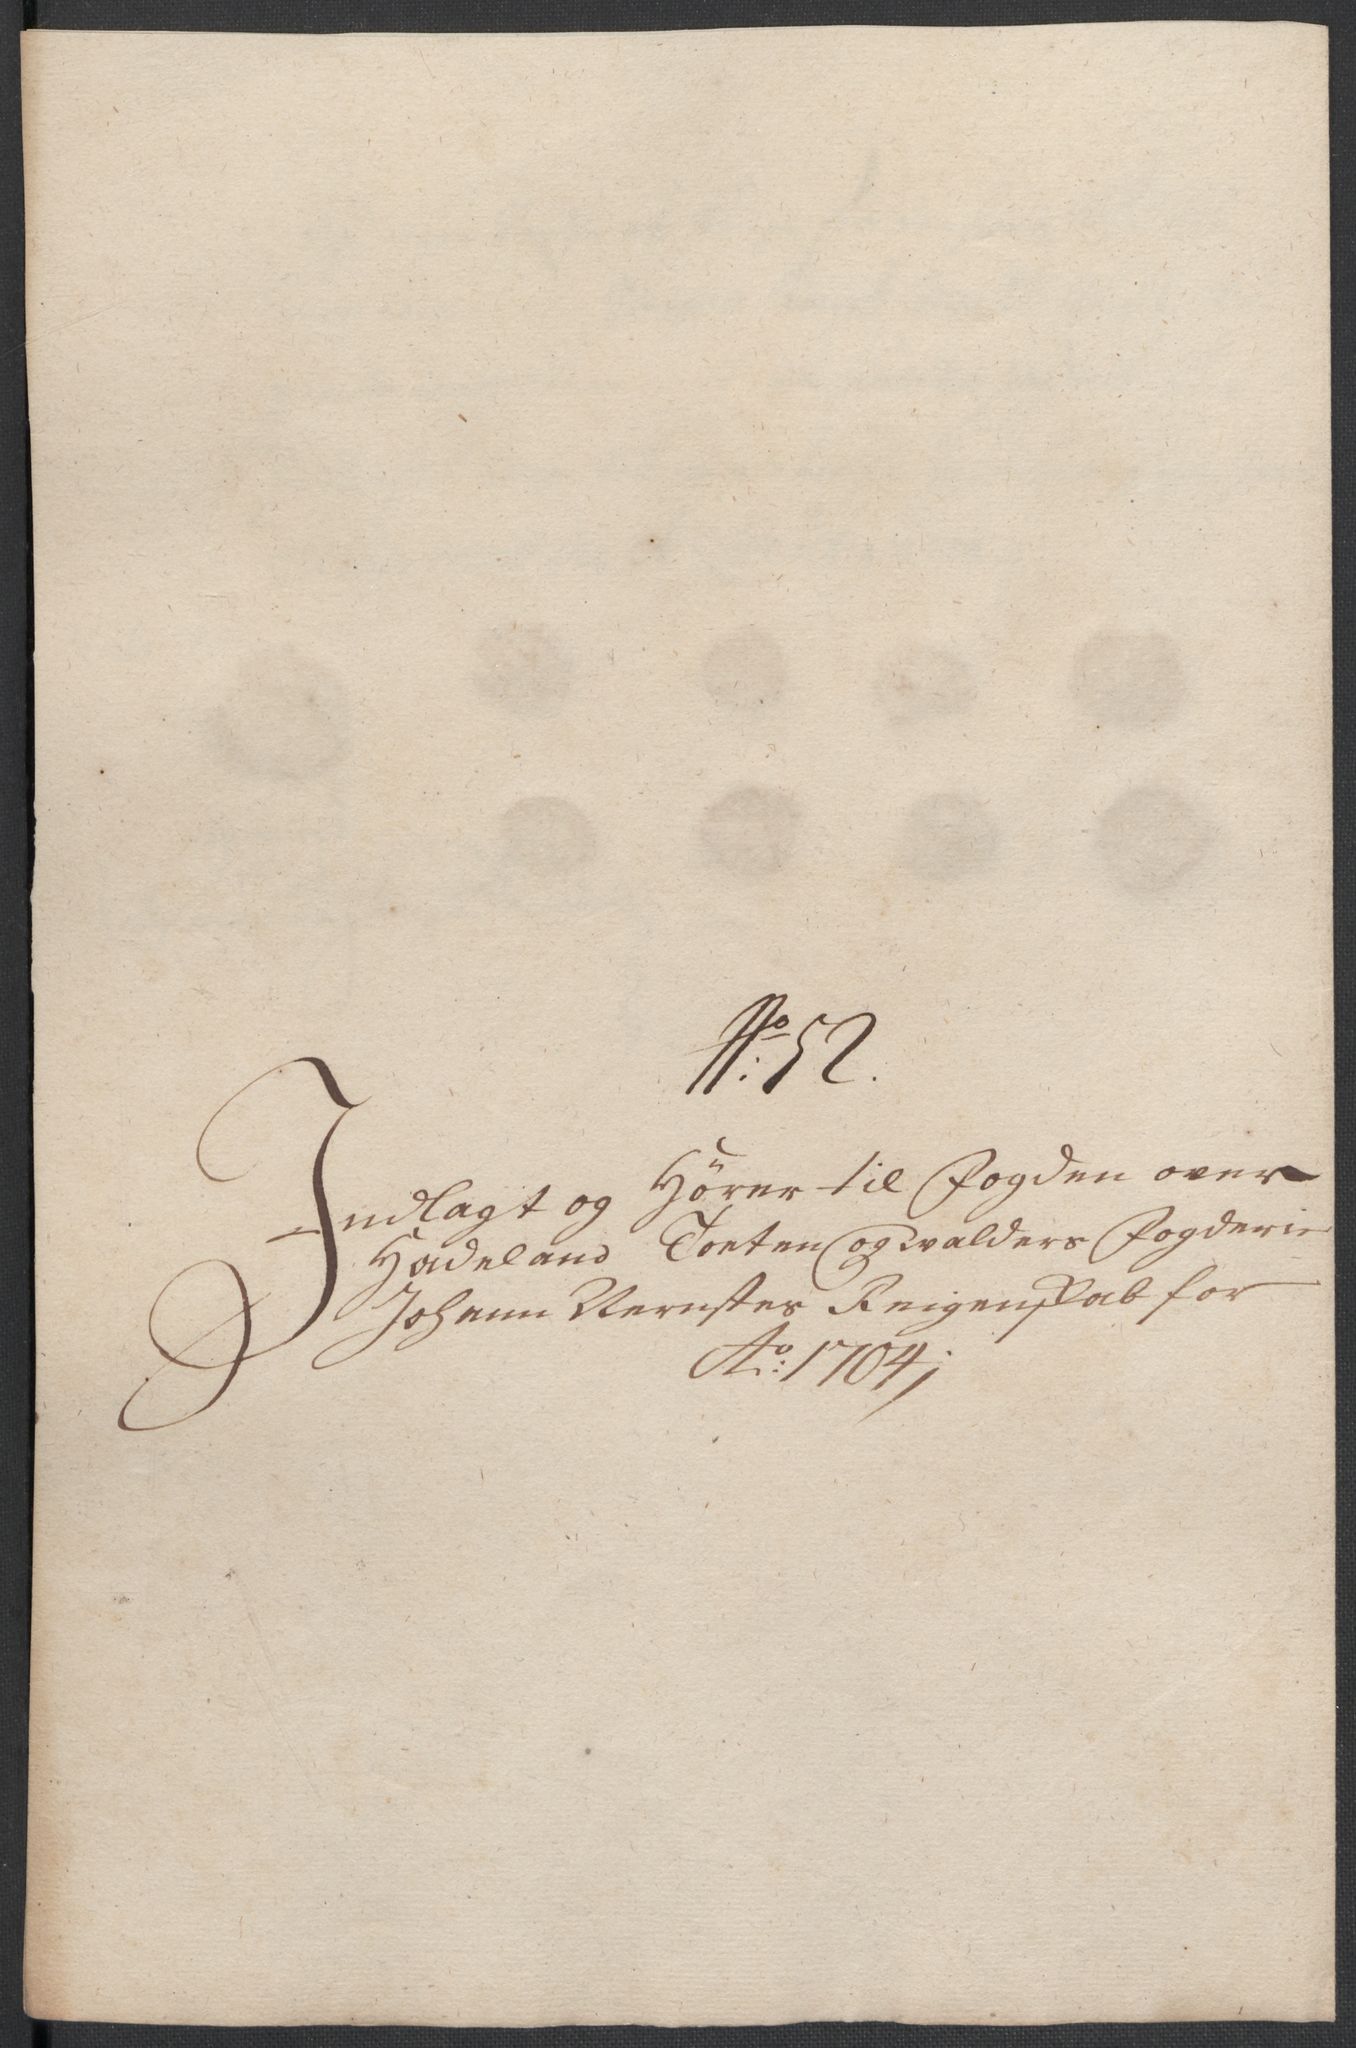 No: 52.
Indlagt og Hörer til Fogden over
Hadeland Toeten og Walders Fogderie
Johann Vernstes Reigenskab for
Ao: 1704;